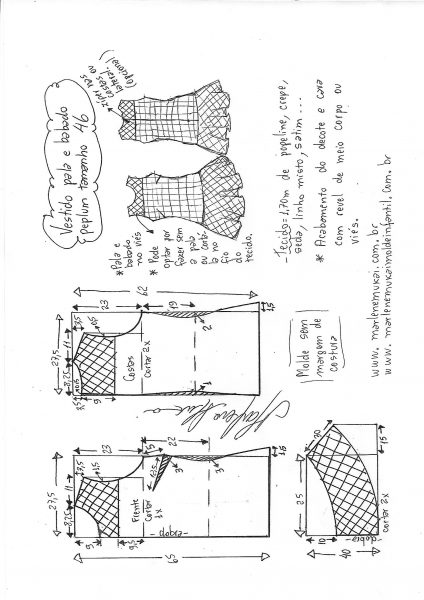 Vestido pala e babado
Peplum tamanho 46
zíper nas
costas ou
lateral
(opcional)
*Pala e
babado
no viés
* Pode
optar por
fazer sem
a pala
ou cortá-
la no
fio
do tecido.
- Tecido = 1,70m de popeline, crepe,
seda, linho misto, satim ...
* Acabamento do decote e cava
com revel de meio corpo ou
viés.
www.marlenemukai.com.br
www.marlenemukaimoldeinfantil.com.br
Molde sem
margem de
costura
62
23
19
27,5
11
8,25
9
Costas
Cortar 2x
2
1
1,5
65
23
22
27,5
11
8,25
9
9,5
Frente
Cortar
1x
-dobra-
5
3,5
3
3
1,5
30
25
10
15
40
-dobra-
cortar 2x